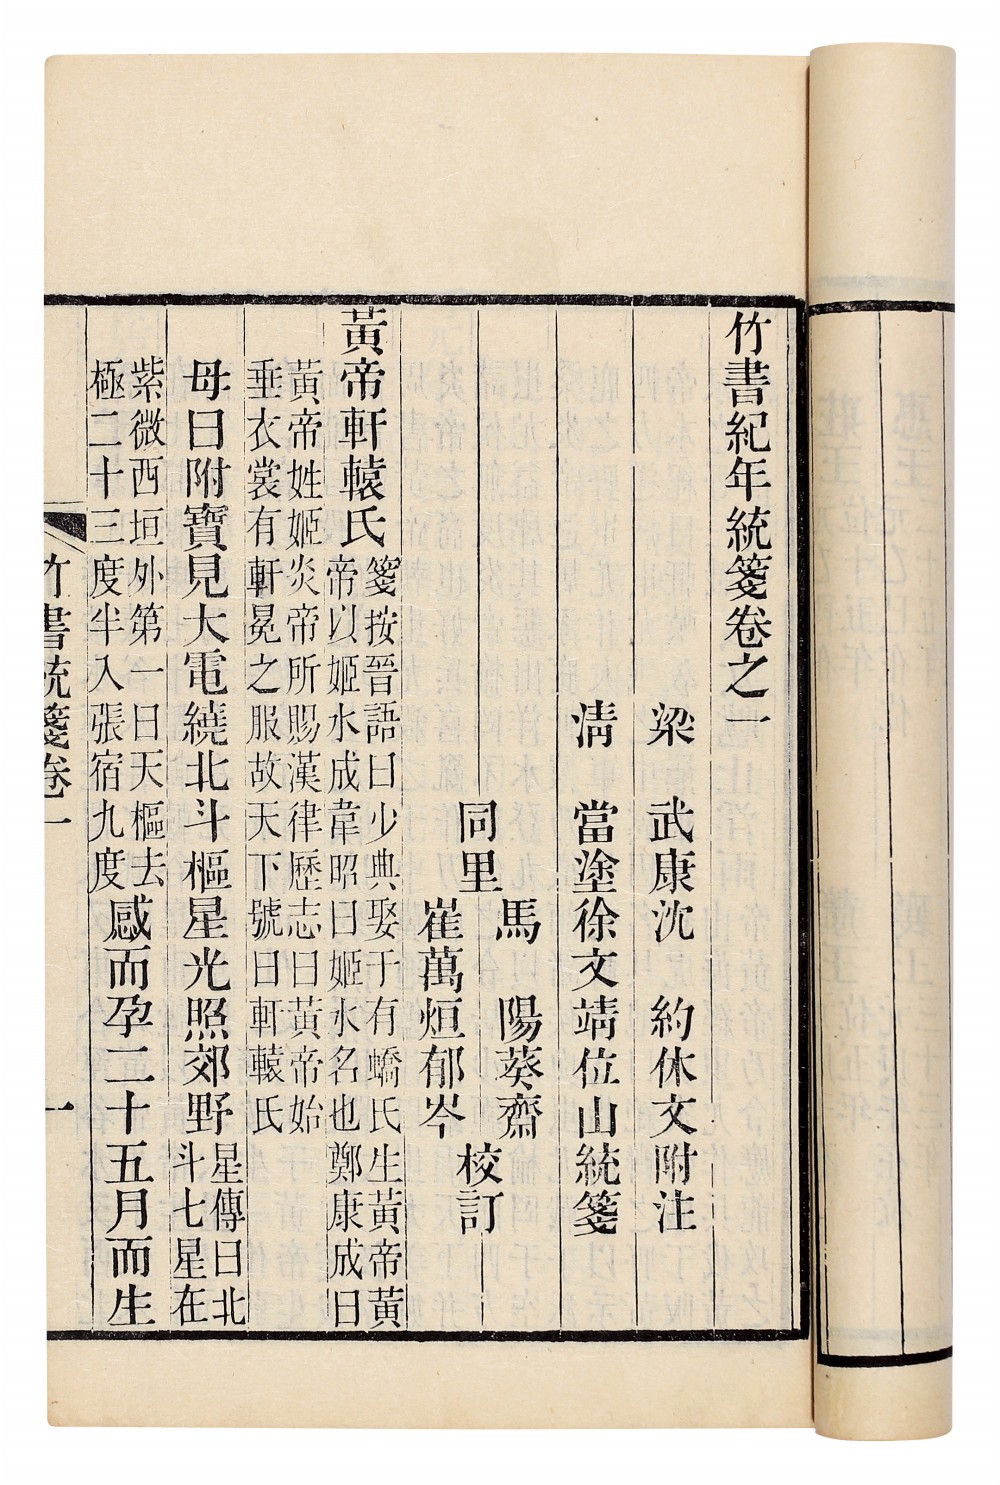 竹書紀年統箋卷之一
梁　武康沈　約休文附注
清　當塗徐文靖位山統箋
馬　陽葵齋
同里　校訂
崔萬烜郁岑
黃帝軒轅氏
箋按晉語曰少典娶于有蟜氏生黃帝黃
帝以姬水成韋昭曰姬水名也鄭康成曰
黃帝姓姬炎帝所賜漢律歷志曰黃帝始
垂衣裳有軒冕之服故天下號曰軒轅氏
母曰附寶見大電繞北斗樞星光照郊野
星傳曰北
斗七星在
紫微西垣外第一曰天樞去
極二十三度半入張宿九度
感而孕二十五月而生
竹書統箋卷一
一